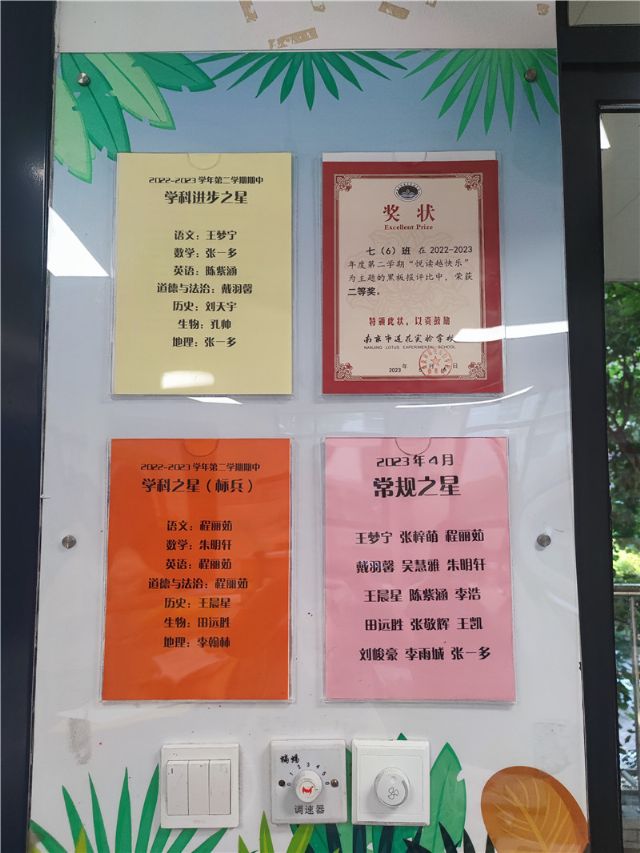 2022-2023学年第二学期期中
学科进步之星
语文：王梦宁
数学：张一多
英语：陈紫涵
道德与法治：戴羽馨
历史：刘天宇
生物：孔帅
地理：张一多
奖状
Excellent Prize
七（6）班 在 2022-2023
年度第二学期“悦读越快乐”
为主题的黑板报评比中，荣获
二等奖。
特颁此状，以资鼓励
南京市莲花实验学校
NANJING LOTUS EXPERIMENTAL SCHOOL
2023 年 月 日
2022-2023学年第二学期期中
学科之星（标兵）
语文：程丽茹
数学：朱明轩
英语：程丽茹
道德与法治：程丽茹
历史：王晨星
生物：田远胜
地理：李翰林
2023年4月
常规之星
王梦宁 张梓萌 程丽茹
戴羽馨 吴慧雅 朱明轩
王晨星 陈紫涵 李浩
田远胜 张敬辉 王凯
刘峻豪 李雨城 张一多
0 1 2 3 4 5
调速器